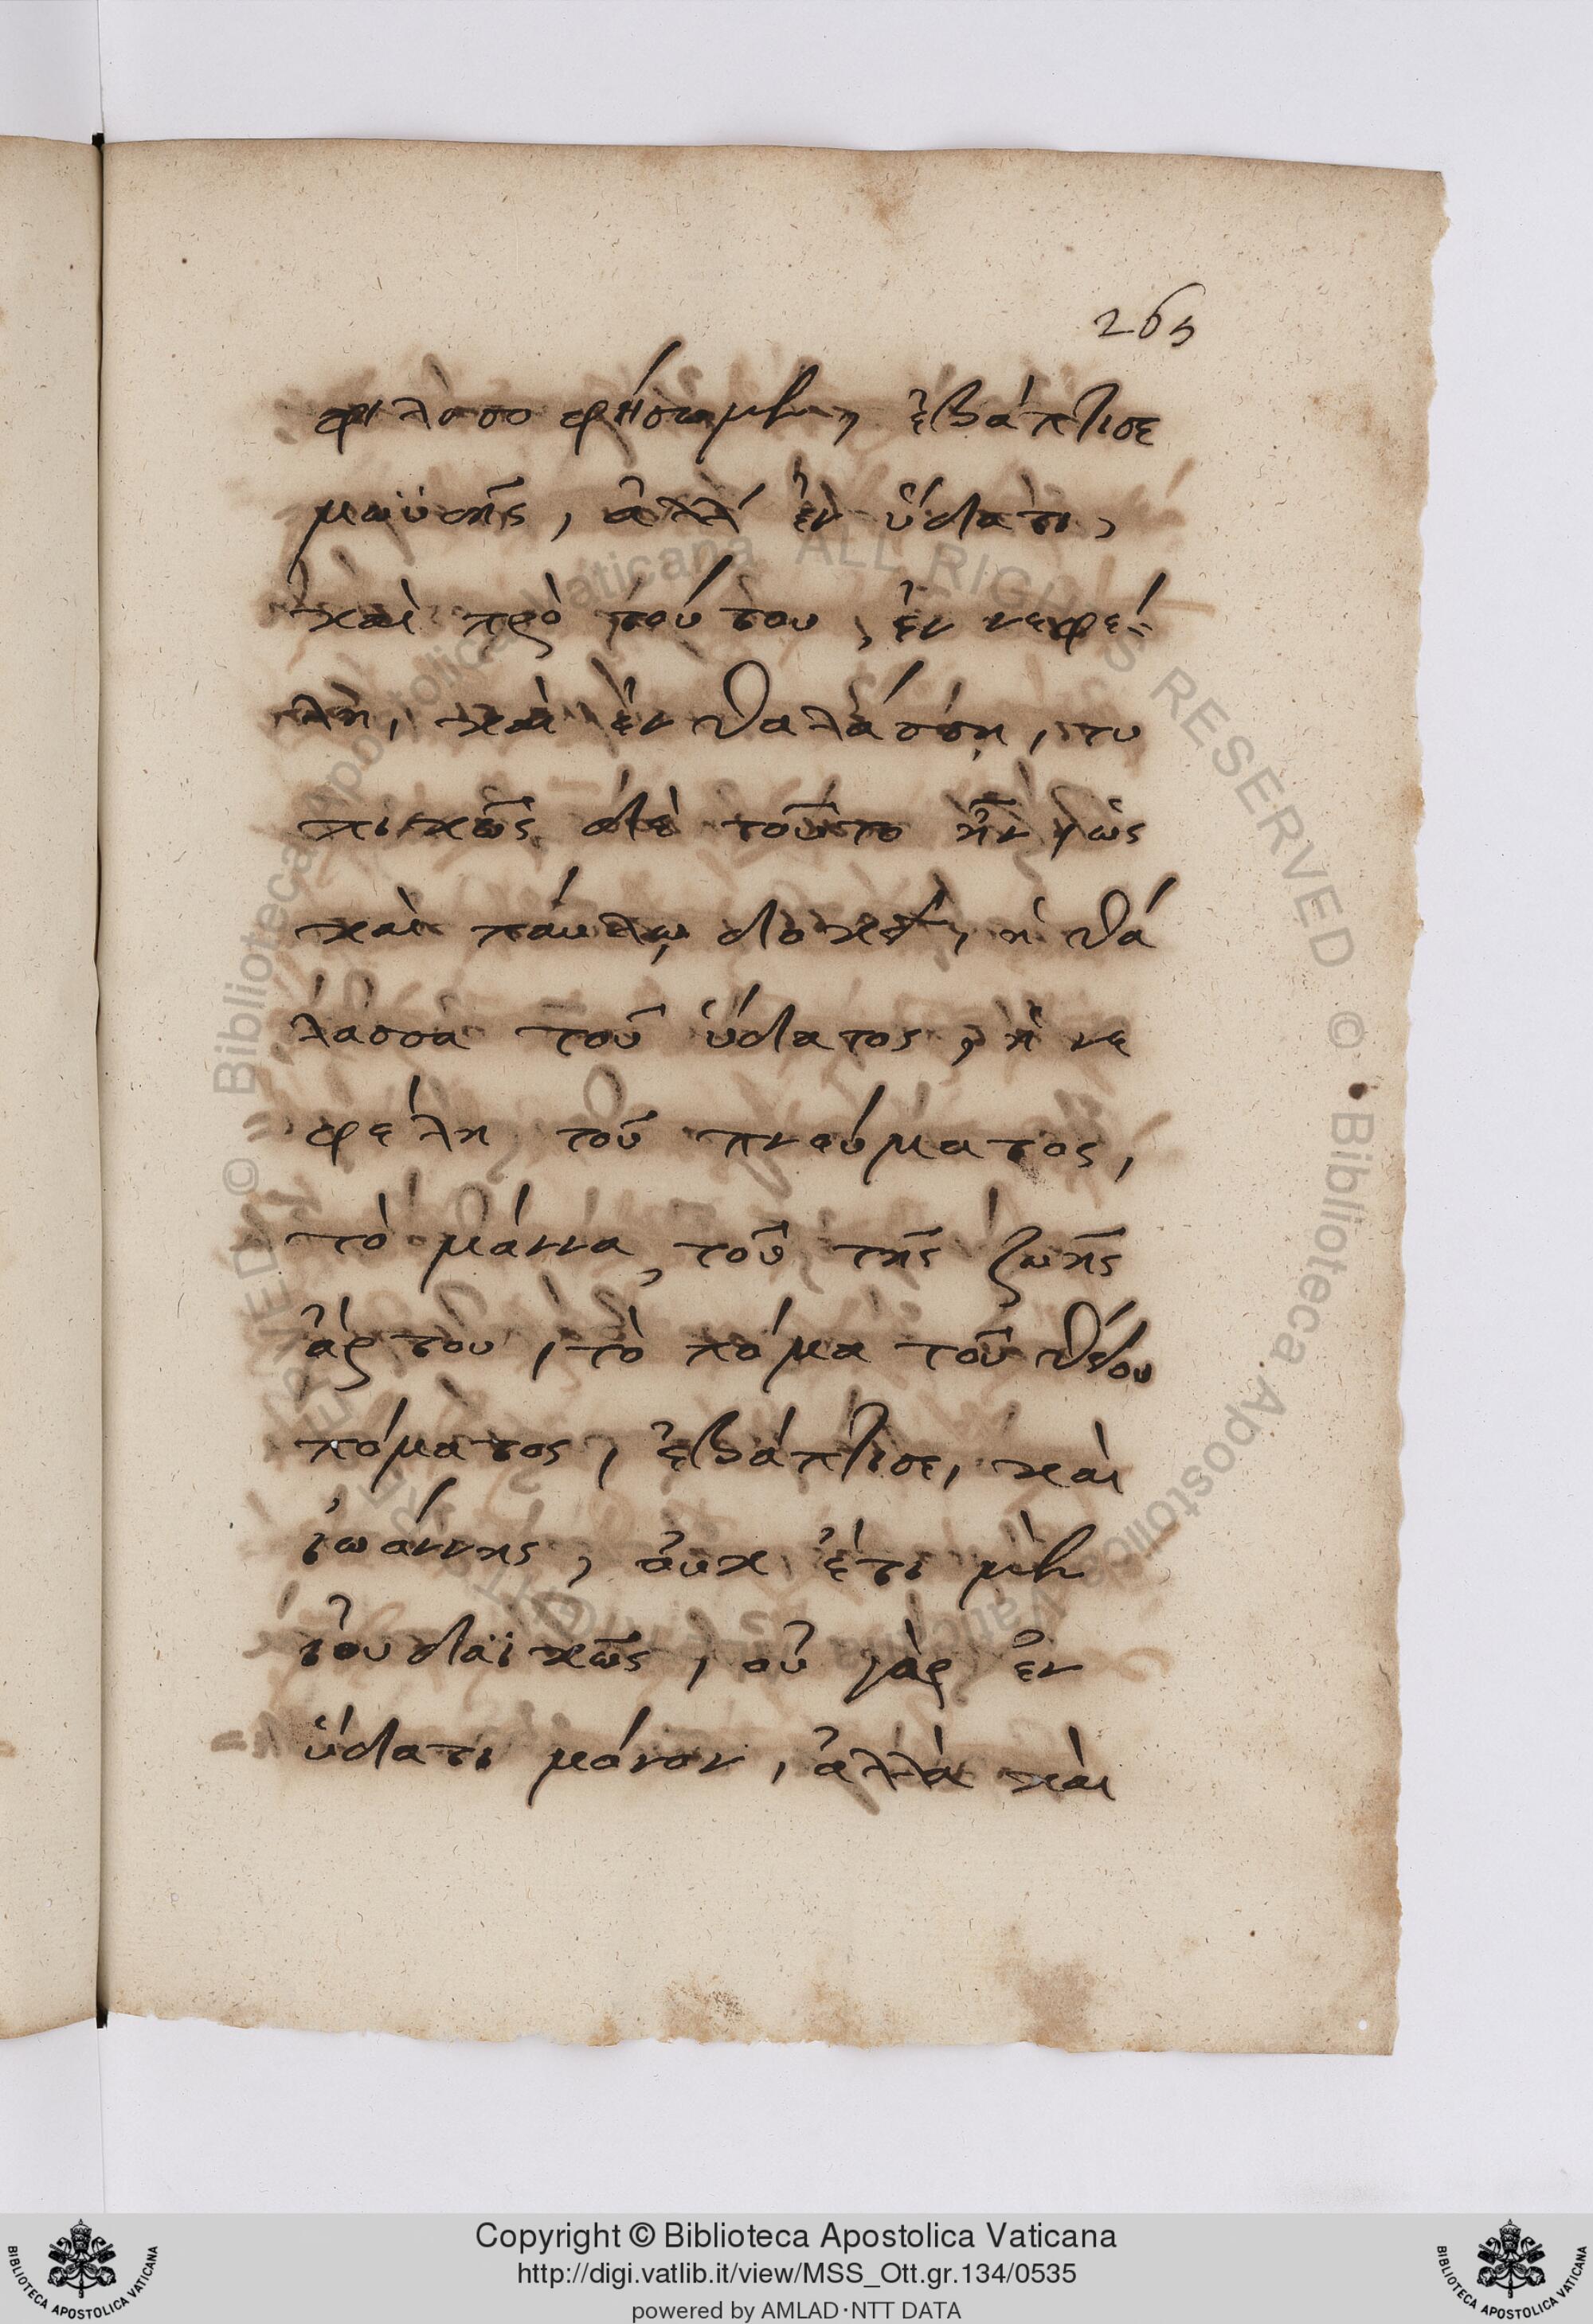 265
φιλοσοφήσωμεν, ἐβάπτισε
μωϋσῆς, ἀλλ' ἐν ὕδατι,
καὶ πρὸ τούτου, ἐν νεφέ-
λη, καὶ ἐν θαλάσση, τυ
πικῶς δὲ τοῦτο ἦν, ὡς
καὶ παύλω δοκεῖ, ἡ θά
λασσα τοῦ ὕδατος, ἡ νε
φέλη τοῦ πνεύματος,
τὸ μάννα, τοῦ τῆς ζωῆς
ἄρτου, τὸ πόμα τοῦ θείου
πόματος, ἐβάπτισε, καὶ
ἰωάννης, οὐκ ἔτι μὲν
ἰουδαϊκῶς, οὐ γὰρ ἐν
ὕδατι μόνον, ἀλλὰ καὶ
© Biblioteca Apostolica Vaticana ALL RIGHTS RESERVED © Biblioteca Apostolica Vaticana ALL RIGHTS RESERVED
Copyright © Biblioteca Apostolica Vaticana
http://digi.vatlib.it/view/MSS_Ott.gr.134/0535
powered by AMLAD·NTT DATA
BIBLIOTECA APOSTOLICA VATICANA
BIBLIOTECA APOSTOLICA VATICANA